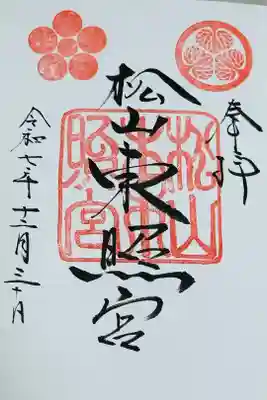 奉拝
松山東照宮
松山東照宮
令和七年十二月三十日